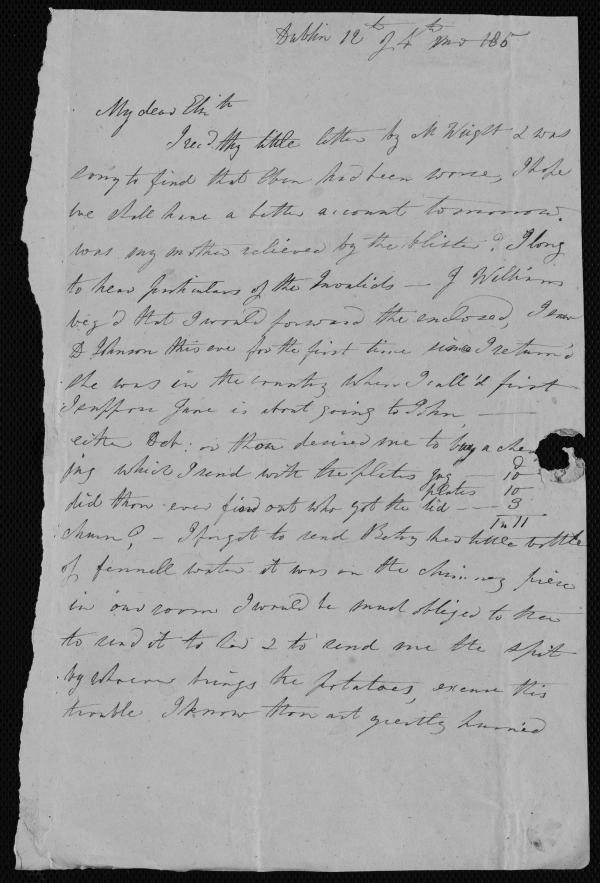 Dublin 12th of 4th mo 185
My dear Elizth
I recd thy little letter by M Wright & was
sorry to find that Eben had been worse, I hope
we shall have a better account tomorrow.
was my mother relieved by the blister? I long
to hear particulars of the Invalids — J Williams
beg'd that I would forward the enclosed, I saw
D Johnson this eve for the first time since I return'd
she was in the country when I call'd first
I suppose Jane is about going to John —
either Deb: or thou desired me to buy a
jug which I send with the plates jug — 10
plates 10
did thou ever find out who got the lid — 3
1 " 11
churn? — I forgot to send Betsy her little bottle
of fennell water it was on the chimney piece
in our room I would be much obliged to thee
to send it to her & to send me the spit
by whoever brings the potatoes, excuse this
trouble I know thou art greatly hurried